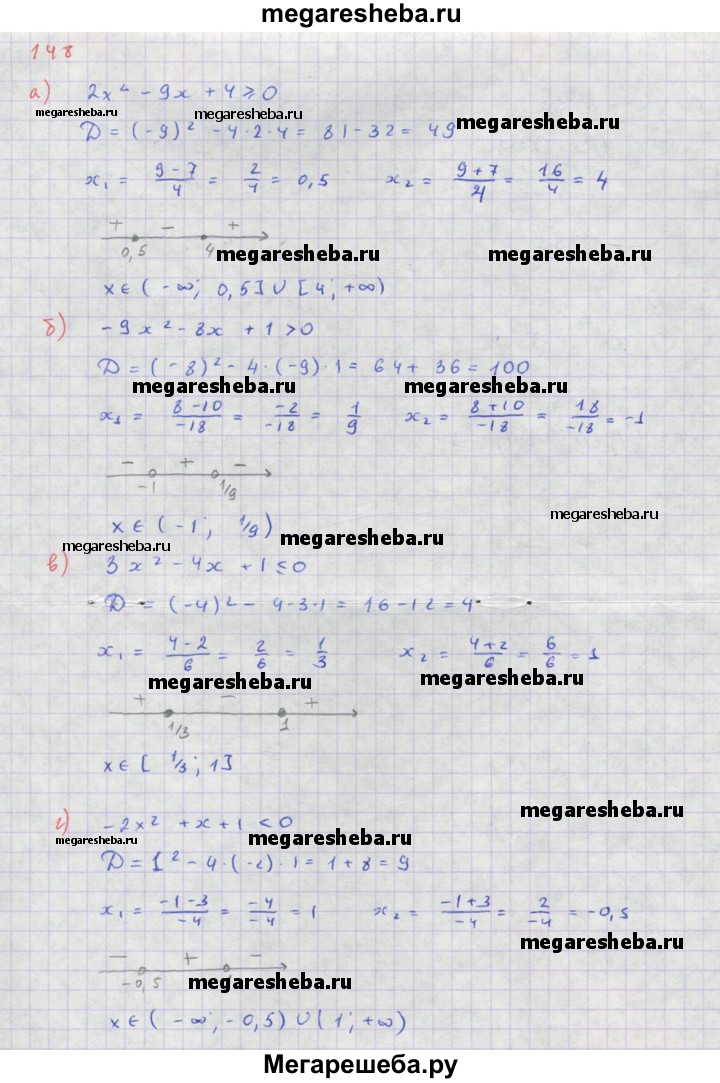 megaresheba.ru
148
а) 2x² - 9x + 4 ≥ 0
megaresheba.ru megaresheba.ru megaresheba.ru
D = (-9)² - 4·2·4 = 81 - 32 = 49
x₁ = (9-7)/4 = 2/4 = 0,5 x₂ = (9+7)/4 = 16/4 = 4
+ - +
0,5 4
megaresheba.ru megaresheba.ru
x ∈ (-∞; 0,5] ∪ [4; +∞)
б) -9x² - 8x + 1 > 0
D = (-8)² - 4·(-9)·1 = 64 + 36 = 100
megaresheba.ru megaresheba.ru
x₁ = (8-10)/-18 = -2/-18 = 1/9 x₂ = (8+10)/-18 = 18/-18 = -1
- + -
-1 1/9
megaresheba.ru
x ∈ (-1; 1/9)
megaresheba.ru megaresheba.ru
в) 3x² - 4x + 1 ≤ 0
D = (-4)² - 4·3·1 = 16 - 12 = 4
x₁ = (4-2)/6 = 2/6 = 1/3 x₂ = (4+2)/6 = 6/6 = 1
megaresheba.ru megaresheba.ru
+ - +
1/3 1
x ∈ [1/3; 1]
megaresheba.ru
г) -2x² + x + 1 < 0
megaresheba.ru megaresheba.ru
D = 1² - 4·(-2)·1 = 1 + 8 = 9
x₁ = (-1-3)/-4 = -4/-4 = 1 x₂ = (-1+3)/-4 = 2/-4 = -0,5
megaresheba.ru
- + -
-0,5
megaresheba.ru
x ∈ (-∞; -0,5) ∪ (1; +∞)
Мегарешеба.ру